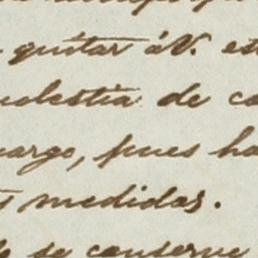 quitar á V. est
molestia de co
argo, pues ha
medidas.
se conserve